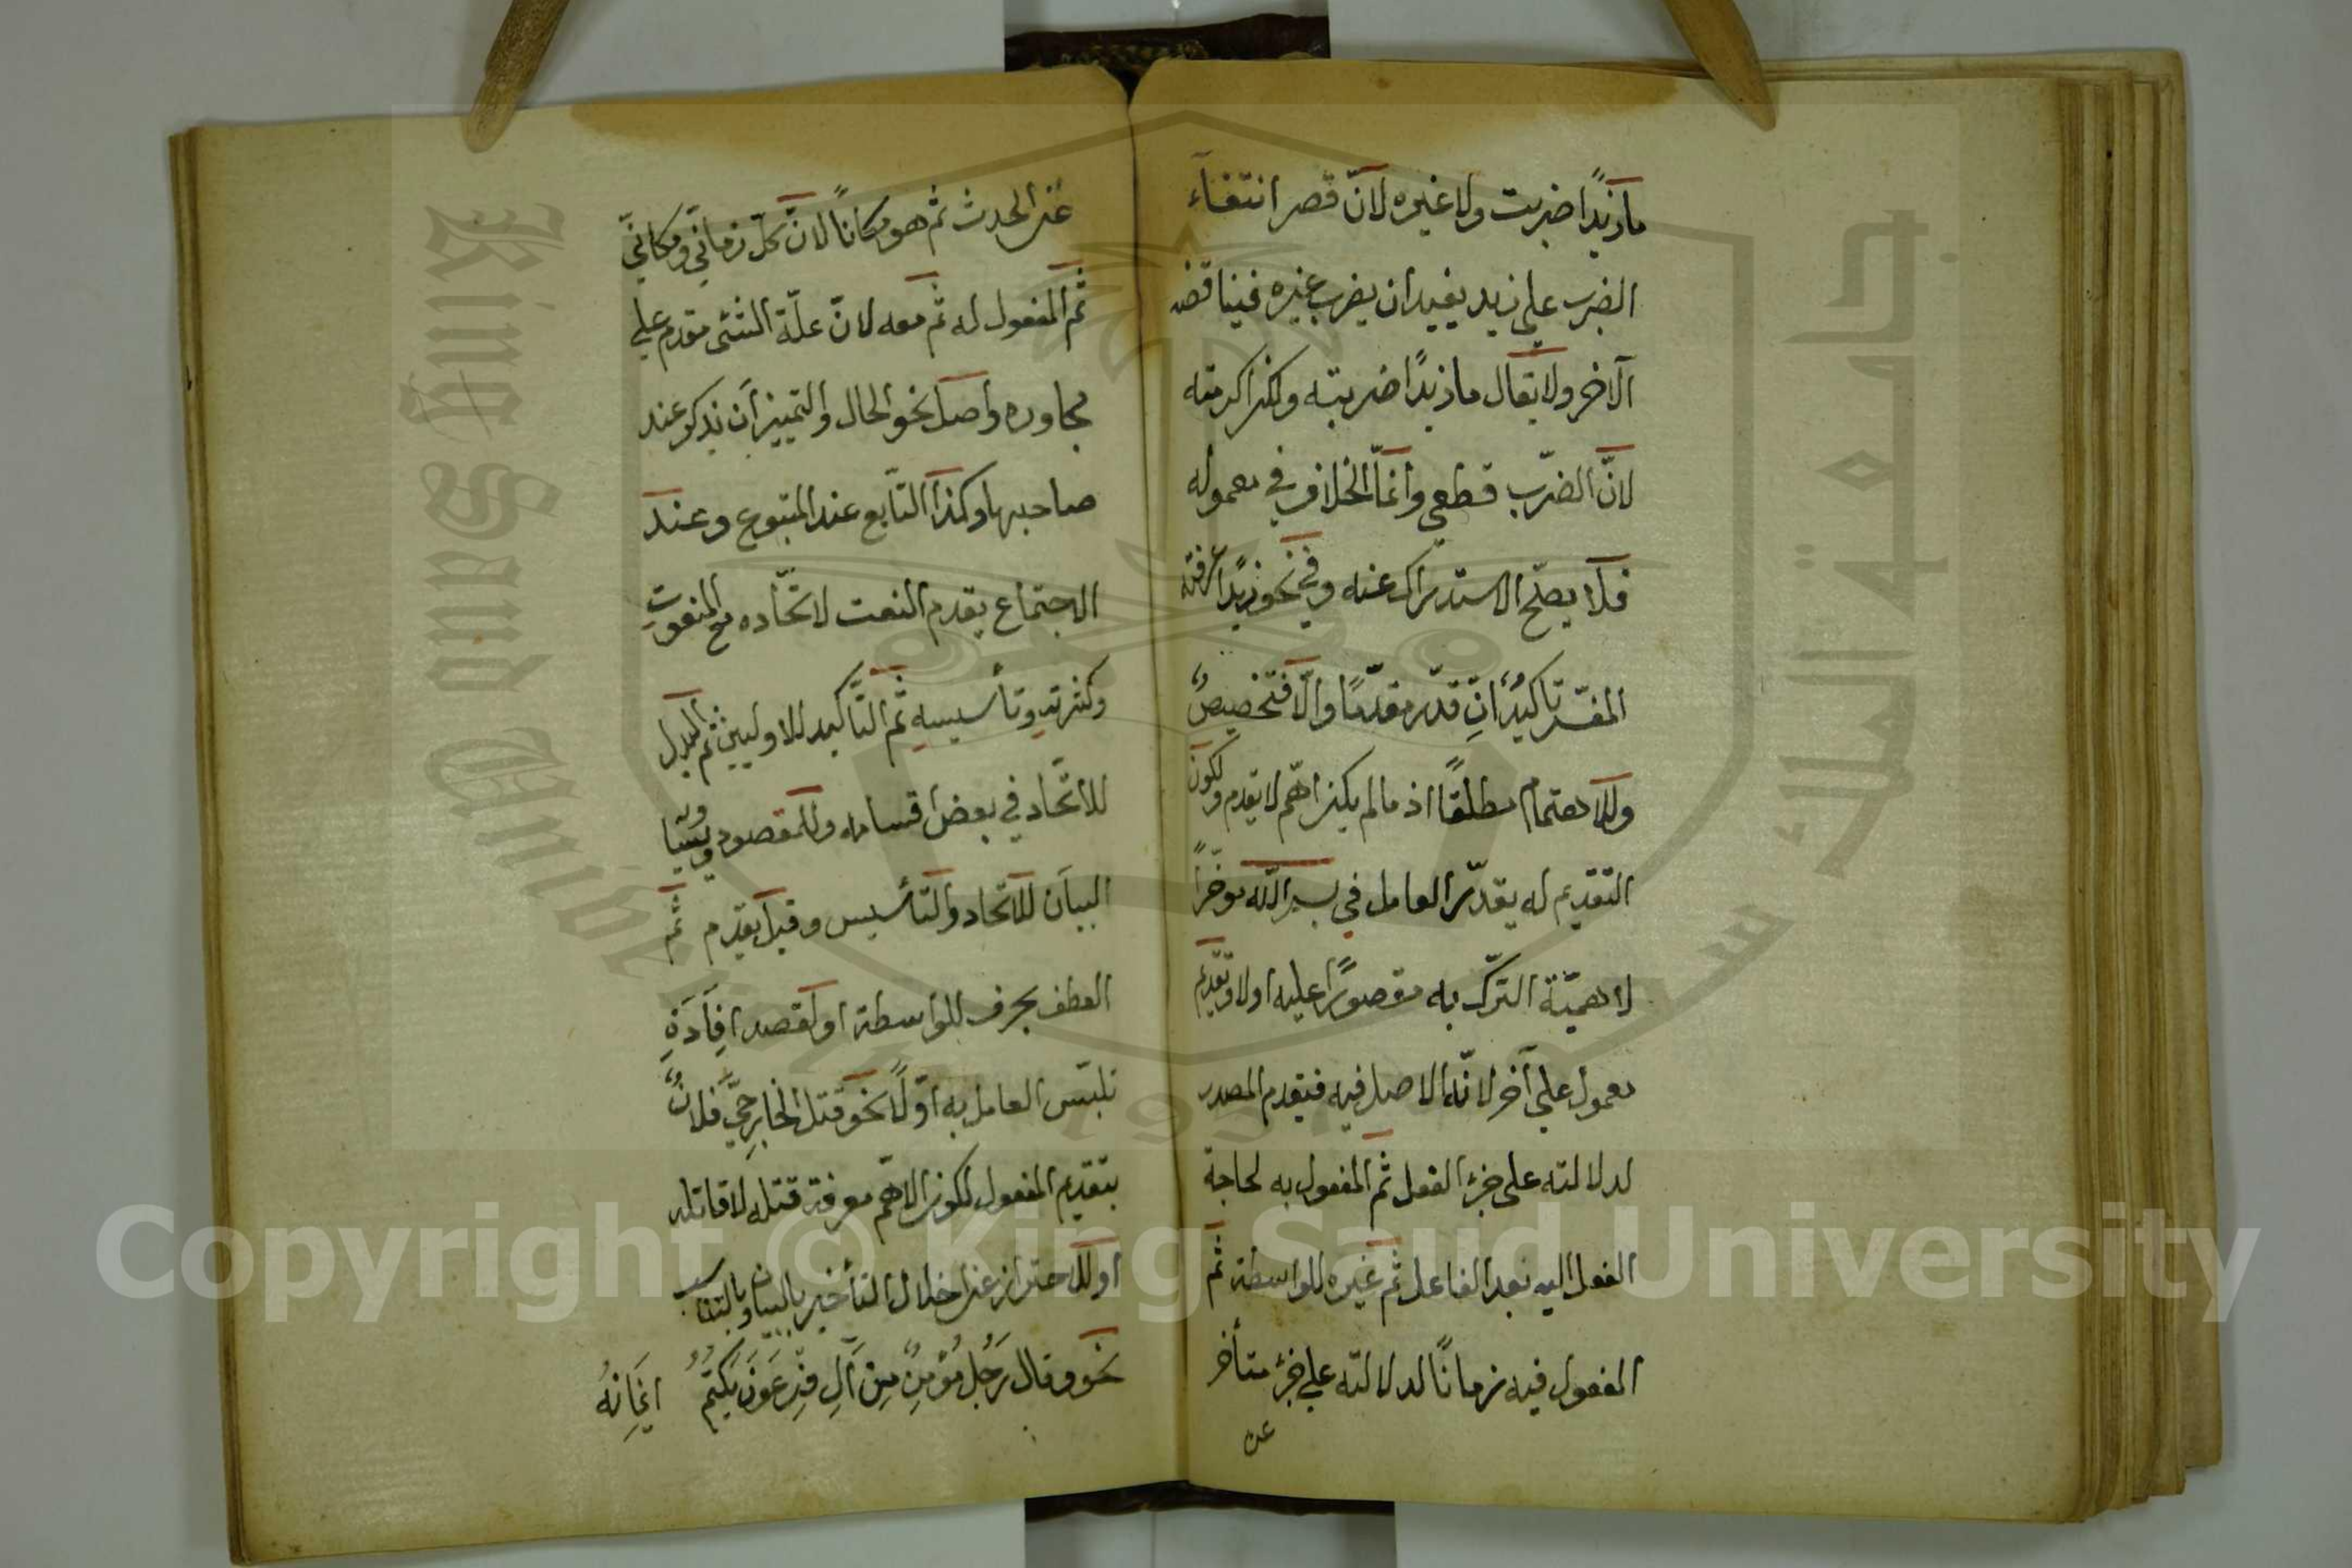 ما زيدًا ضربت ولا غيره لانّ قصر انتفآء
الضرب علي زيد يفيد ان يضرب غيره فيناقضه
الآخر ولا يقال ما زيدًا ضربته ولكن اكرمته
لانّ الضرب قطعي وانمّا الخلاف في معموله
فلا يصلح الاستدراك عنه وفي نحو زيدًا عرفته
المفسّر تاكيدٌ ان قدّر مقدّمًا والّا فتخصيصٌ
وللاهتمام مطلقًا اذ ما لم يكن اهمّ لا يقدم ولكون
التقديم له يقدّر العامل في بسم اللّه موخّرًا
لاهميّة التبرّك به مقصورًا عليه اولا وتقديم
معمول علي آخر لانّه الاصل فيه فيقدم المصدر
لدلالته على جزء الفعل ثم المفعول به لحاجة
الفعل اليه بعد الفاعل ثم غيره للواسطة ثم
المفعول فيه زمانًا لدلالته علي جزء متأخر
عن
عن الحدث ثم هو مكانًا لانّ كلّ زمانيّ ومكانيّ
ثم المفعول له ثم معه لانّ علّة الشئ مقدم علي
مجاوره واصل نحو الحال والتمييز أن يذكر عند
صاحبها وكذا التّابع عند المتبوع وعند
الاجتماع يقدم النعت لاتّحاده مع المنعوت
وكثرته وتأسيسه ثم التّأكيد للاوليين ثم البدل
للاتّحاد في بعض اقسامه وللمقصودية
البيان للاتحاد والتأسيس وقيل يقدم ثم
العطف بحرف للواسطة او لقصد افادة
تلبّس العامل به اوّلًا نحو قتل الخارجيّ فلانٌ
بتقديم المفعول لكون الاهمّ معرفة قتله لا قاتله
او للاحتراز عن اخلال التأخير بالبيان وبالتناسب
نحو وقال رَجُلٌ مُؤمِنٌ مِن آلِ فِرعَونَ يَكتُمُ ايمَانهُ